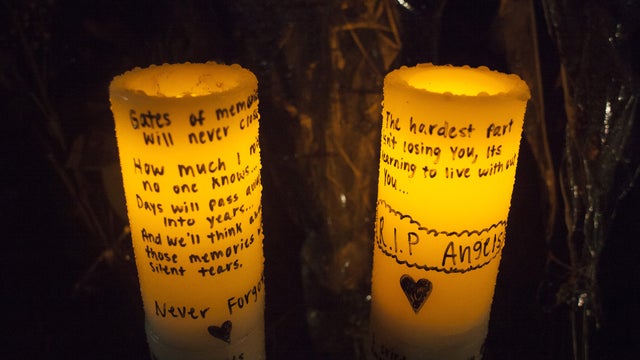 Gates of
will never
How much I
no one knows...
Days will pass
into years...
And we'll think
those memories
silent tears.
Never
The hardest part
losing you, Its
to live without
you...
R.I.P Angels